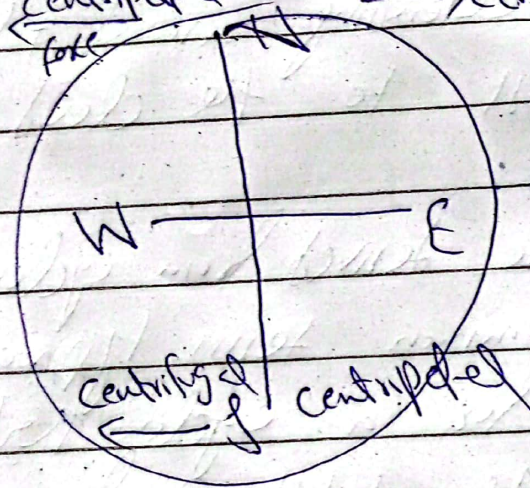 force
N
W E
centrifugal centripetal
S